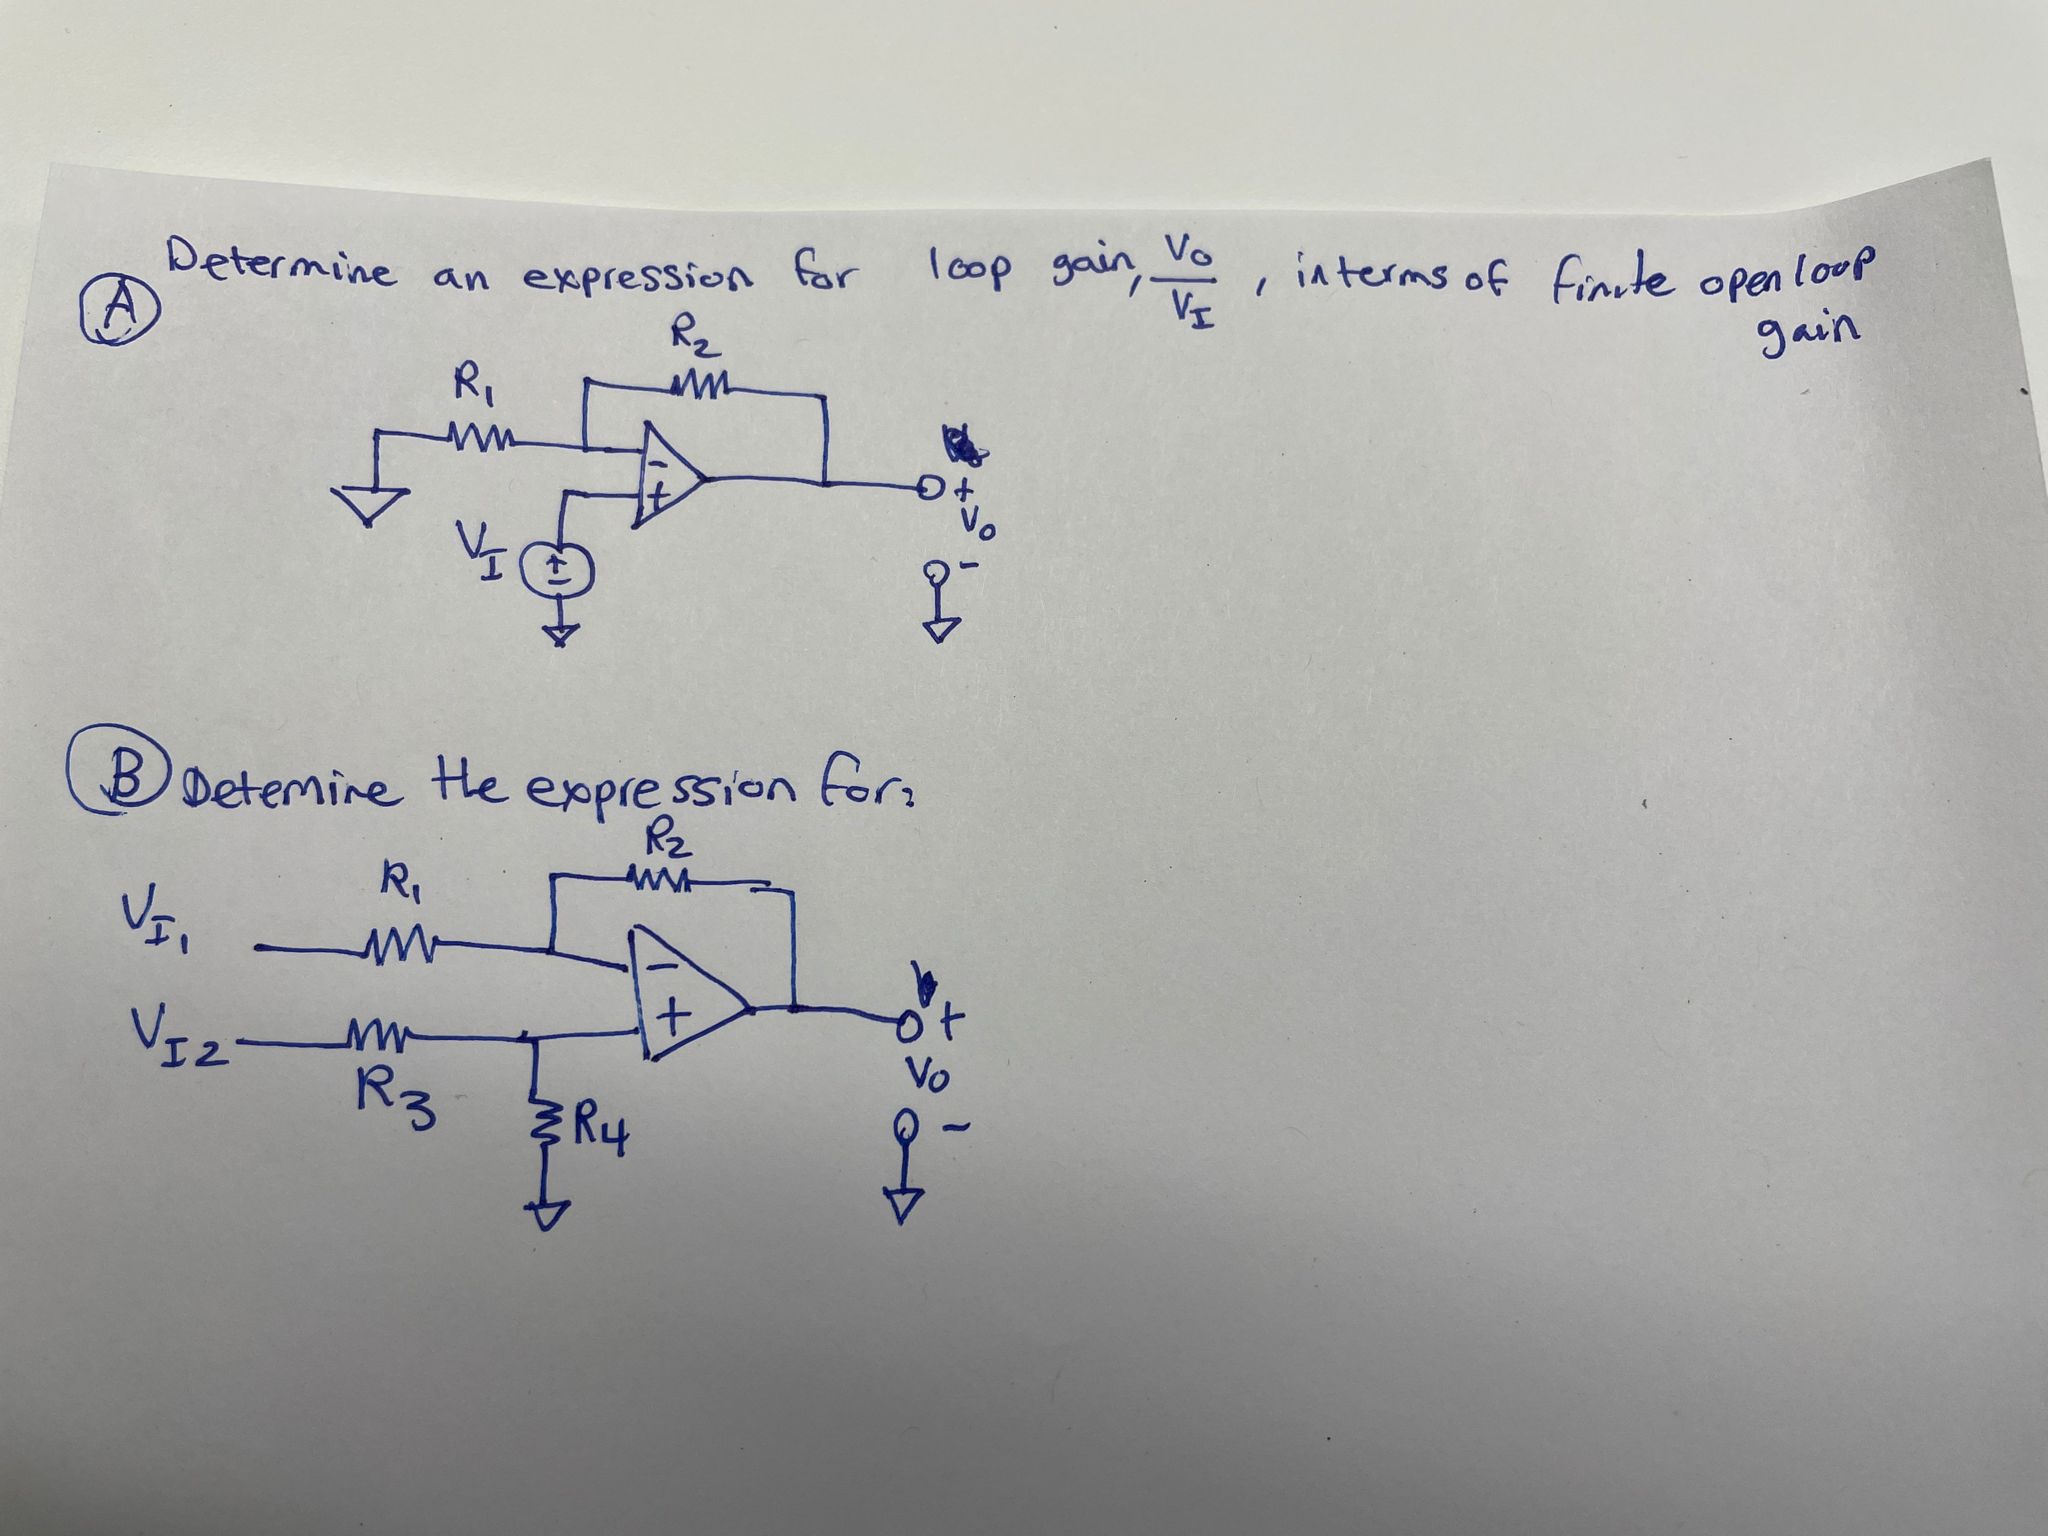 Determine an expression for loop gain, Vo/VI, in terms of finite open loop
gain
A
R2
R1
-
+
+
Vo
-
VI
+
-
B Detemine the expression for:
R2
R1
VI1
-
+
+
VI2
R3
Vo
R4
-